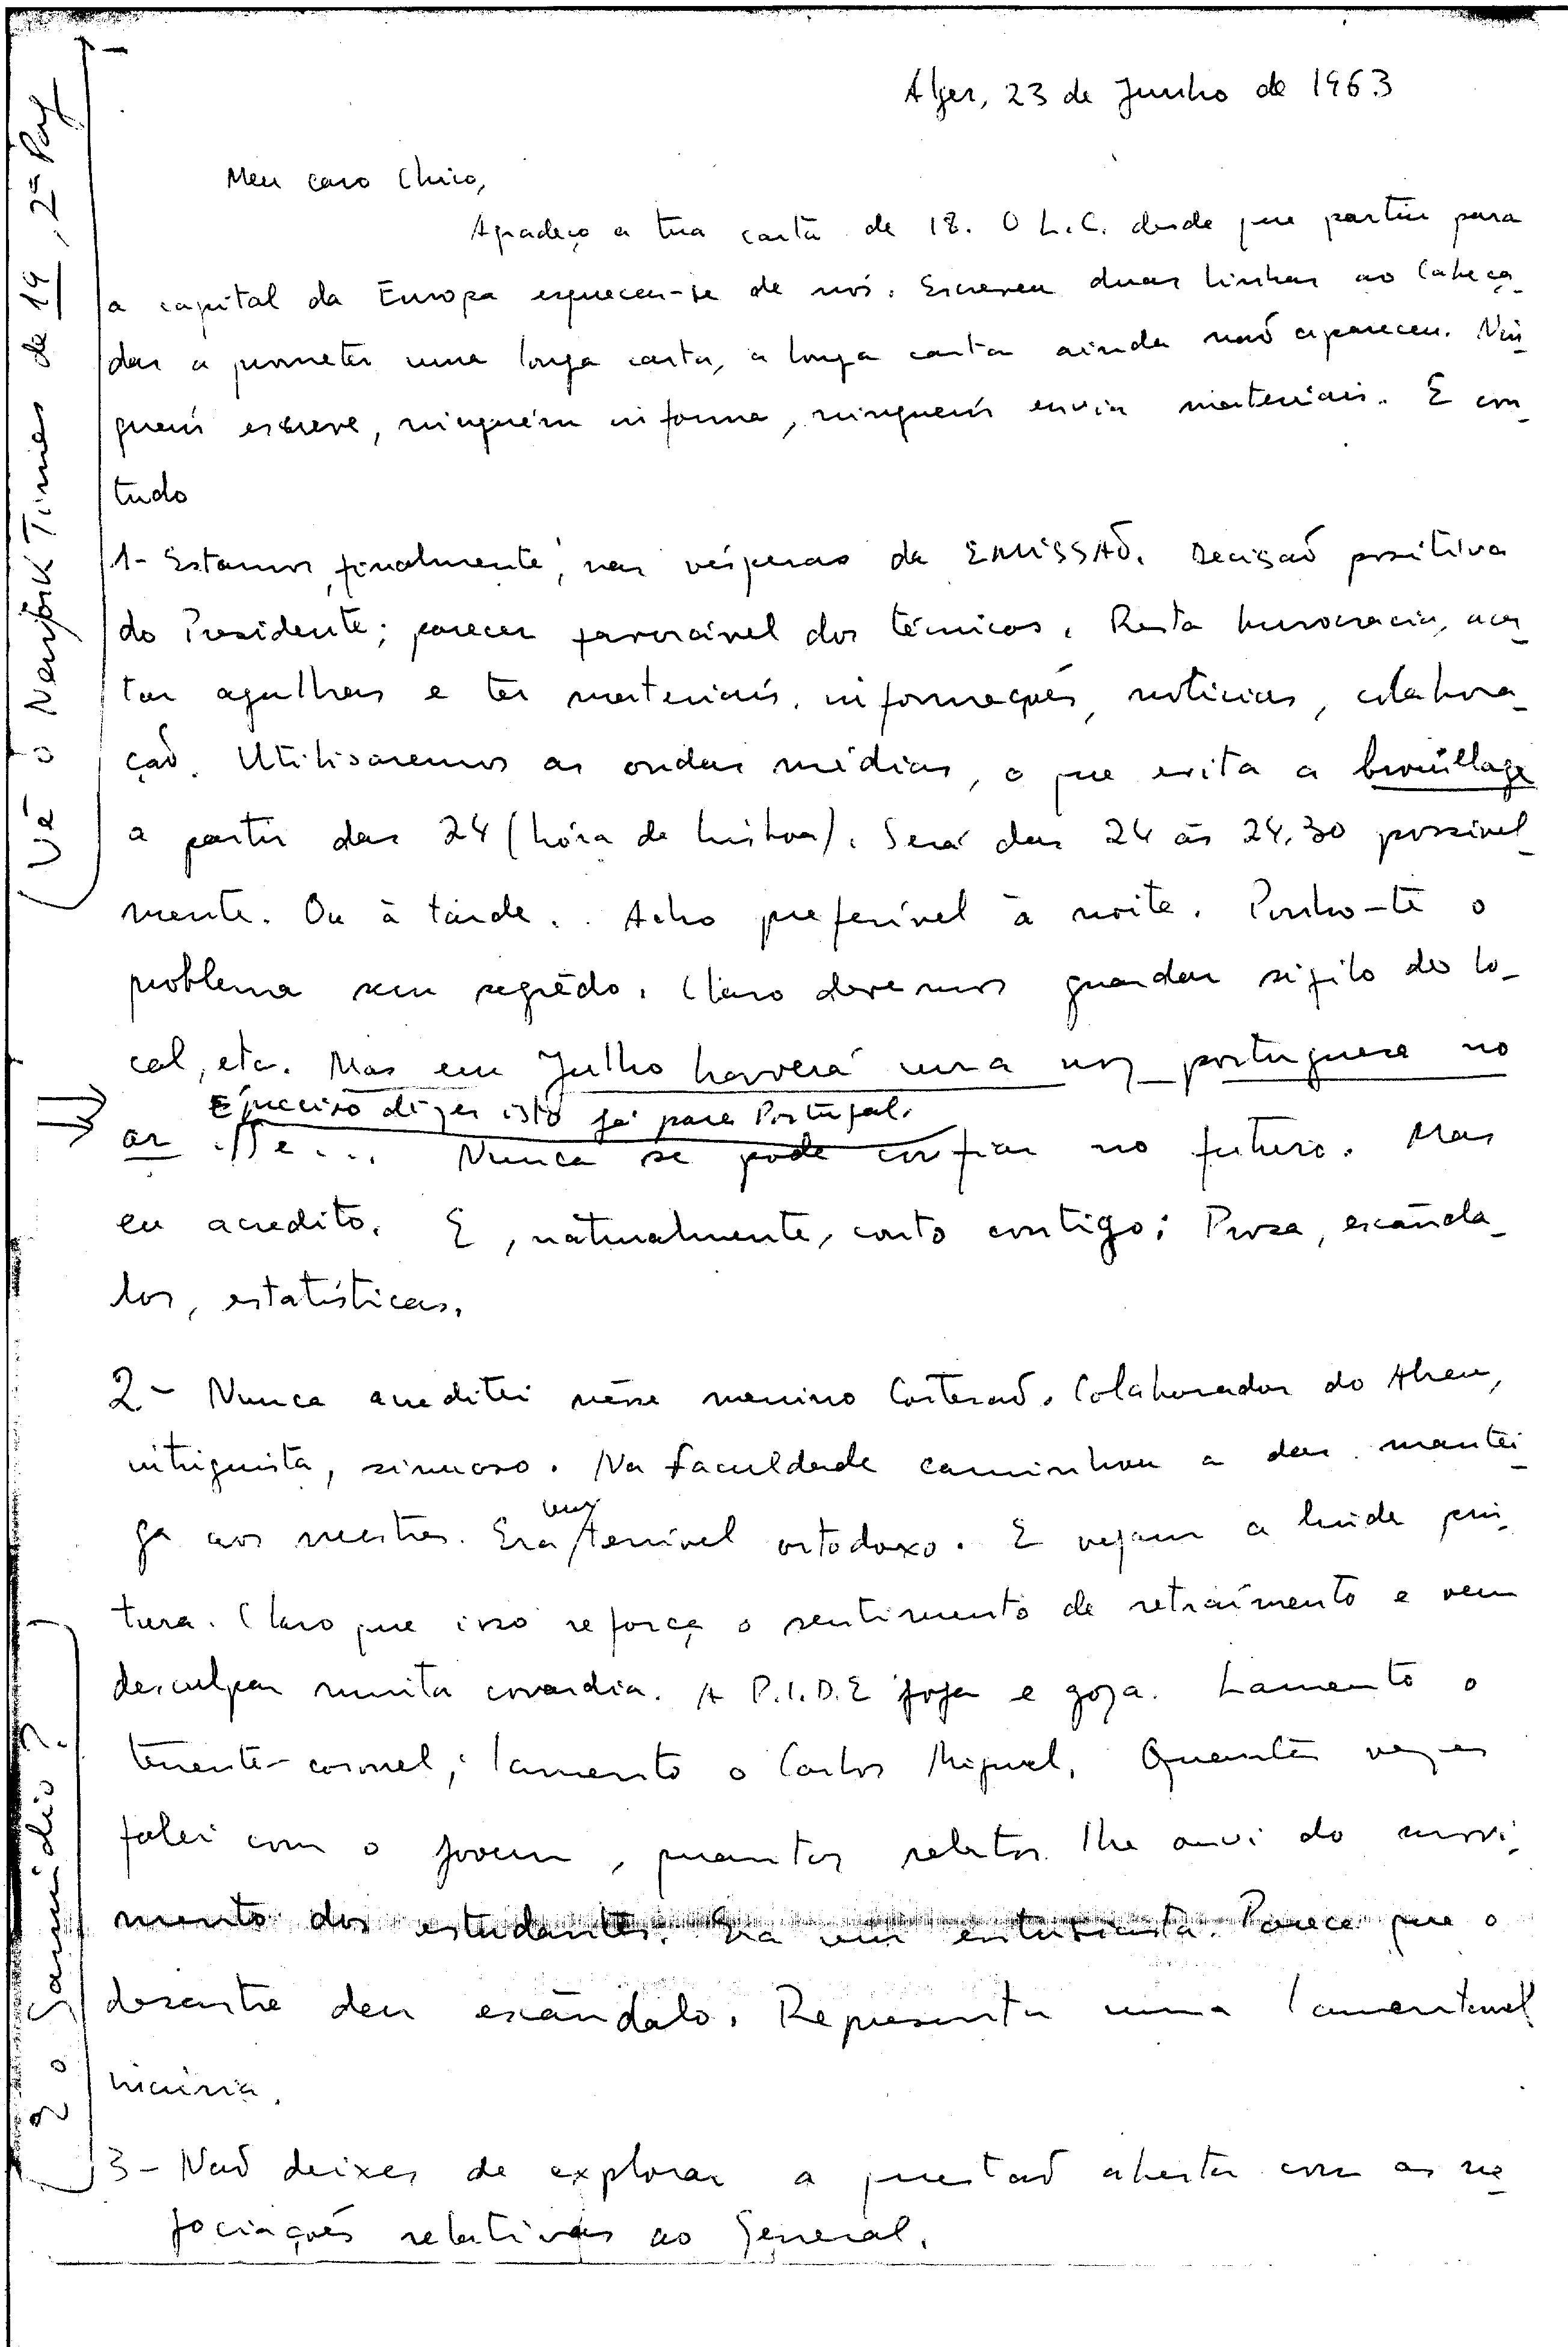 Alger, 23 de Junho de 1963
Meu caro Chico,
Agradeço a tua carta de 18. O L.C. desde que partiu para
a capital da Europa esqueceu-se de nós. Escreveu duas linhas ao Cabeça
das a prometer uma longa carta, a longa carta ainda não apareceu. Nin-
guém escreve, ninguém informa, ninguém envia materiais. E con-
tudo
1- Estamos, finalmente, nas vésperas da EMISSÃO. Decisão positiva
do Presidente; parecer favorável dos técnicos. Resta burocracia, acer-
tar agulhas e ter materiais, informações, notícias, colabora-
ção. Utilisaremos as ondas médias, o que evita a brouillage
a partir das 24 (hóra de Lisboa). Será das 24 às 24,30 possivel-
mente. Ou à tarde. Acho preferível à noite. Ponho-te o
problema sem segrêdo. Claro devemos guardar sigilo do lo-
cal, etc. Mas em Julho haverá uma voz portuguesa no
É preciso dizer isto já para Portugal.
ar Nunca se pode confiar no futuro. Mas
eu acredito. E, naturalmente, conto contigo: Prosa, escânda-
los, estatísticas.
2.- Nunca acreditei nêsse menino Costeraõ. Colaborador do Abreu,
intriguista, sinuoso. Na Faculdade caminhou a dar mantei-
ga aos mestres. Era um terrível ortodoxo. E vejam a linda pin-
tura. Claro que isso reforça o sentimento de retraímento e vem
desculpar muita covardia. A P.I.D.E joga e goza. Lamento o
tenente-coronel; lamento o Carlos Miguel. Quantas vezes
falei com o jovem, quantos relatos lhe ouvi do movi-
mento dos estudantes. Era um entusiasta. Parece que o
desastre deu escândalo. Representa uma lamentavel
incúria.
3- Não deixes de explorar a questão aberta com as ne-
gociações relativas ao General.
(Vê o New York Times de 19, 2ª Pag
E o Sanmidio?